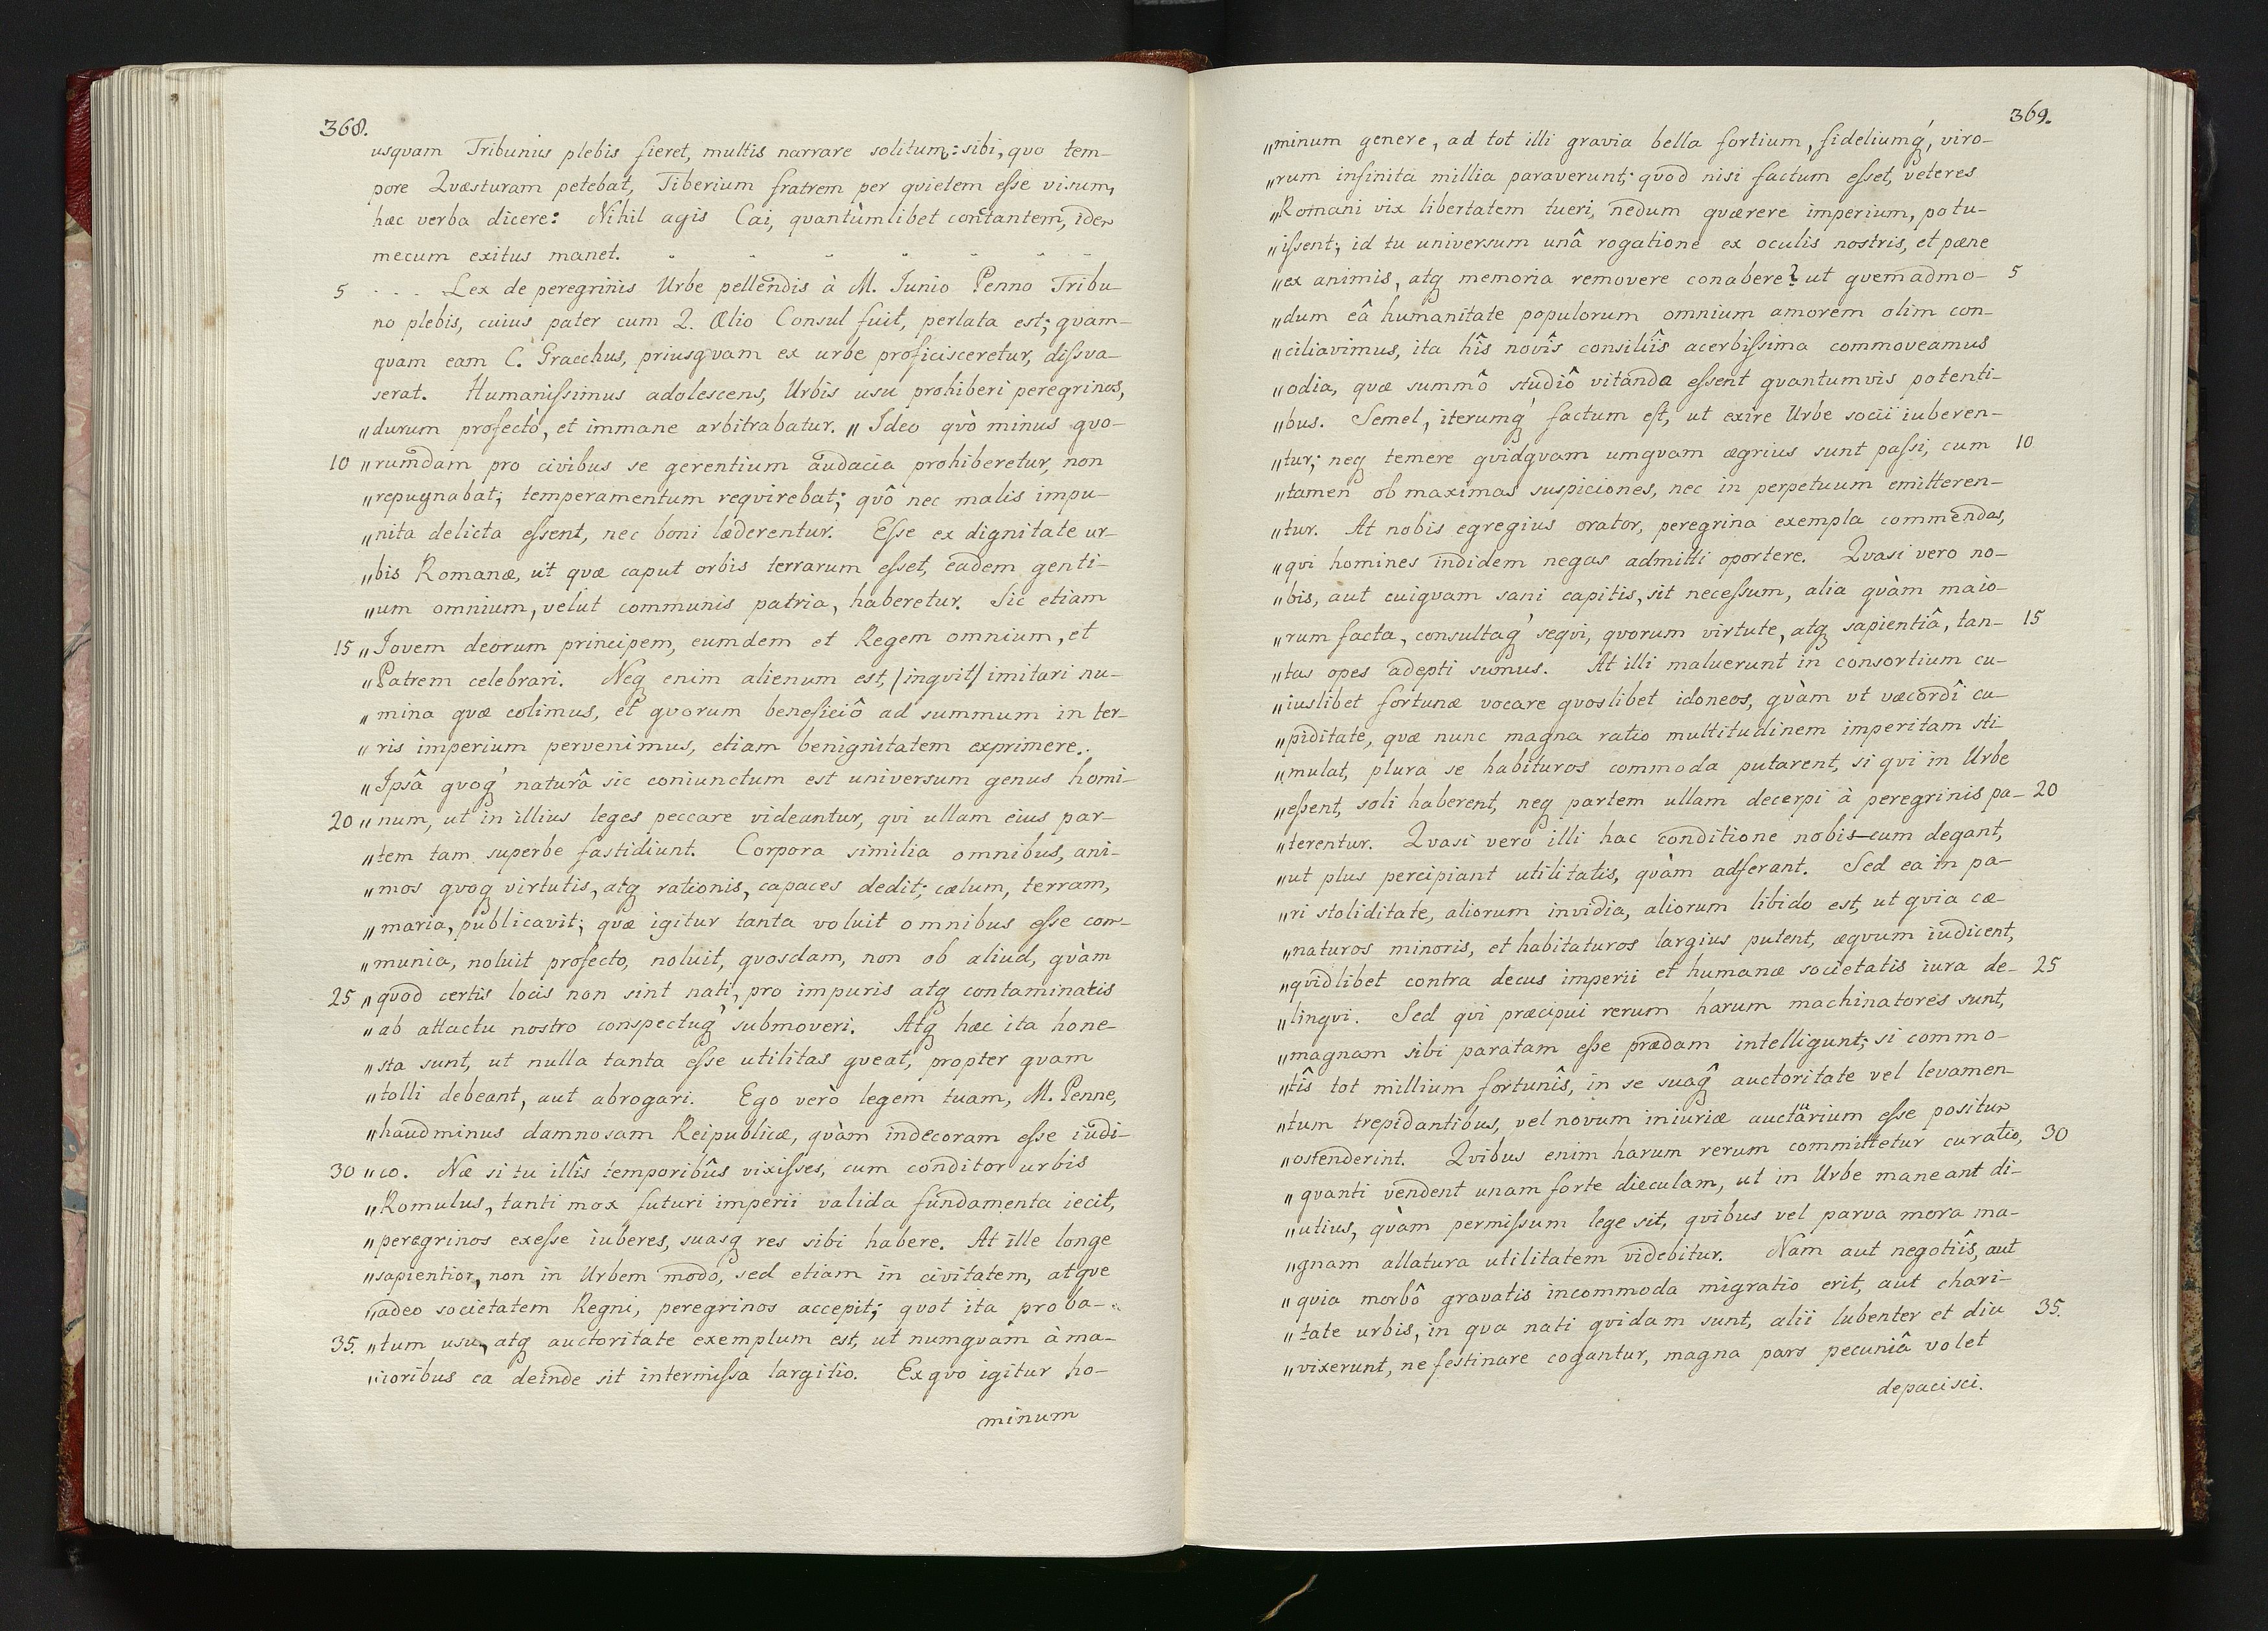 368.
usquam Tribunus plebis fieret, multis narrare solitum: sibi, quo tem-
pore Qvæsturam petebat, Tiberium fratrem per qvietem eſse visum,
hæc verba dicere: Nihil agis Cai, qvantùmlibet conctantem, idem
mecum exitus manet. - - - - - - -
5 - - - Lex de peregrinis Urbe pellendis à M. Iunio Penno Tribu-
no plebis, cuius pater cum Q. Ælio Consul fuit, perlata est; qvam-
qvam eam C. Gracchus, priusqvam ex urbe proficisceretur, diſsva-
serat. Humaniſsimus adolescens, Urbis usu prohiberi peregrinos,
„durum profectò, et immane arbitrabatur. „ Ideo qvò minus qvo-
10 „rumdam pro civibus se gerentium audacia prohiberetur, non
„repugnabat; temperamentum reqvirebat; qvô nec malis impu-
„nita delicta eſsent, nec boni læderentur. Eſse ex dignitate ur-
„bis Romanæ, ut qvæ caput orbis terrarum eſset, eadem genti-
„um omnium, velut communis patria, haberetur. Sic etiam
15 „Iovem deorum principem, eumdem et Regem omnium, et
„Patrem celebrari. Neq enim alienum est, /inqvit/ imitari nu-
„mina qvæ colimus, et qvorum beneficiô ad summum in ter-
„ris imperium pervenimus, etiam benignitatem exprimere.
„Ipsâ qvoq' naturâ sic coniunctum est universum genus homi-
20 „num, ut in illius leges peccare videantur, qvi ullam eius par-
„tem tam superbe fastidiunt. Corpora similia omnibus, ani-
„mos qvoq virtutis, atq rationis, capaces dedit; cælum, terram,
„maria, publicavit; qvæ igitur tanta voluit omnibus eſse com-
„munia, noluit profecto, noluit, qvosdam, non ob aliud, qvàm
25 „qvod certis locis non sint nati, pro impuris atq contaminatis
„ab attactu nostro conspectuq' submoveri. Atq hæc ita hone-
„sta sunt, ut nulla tanta eſse utilitas qveat, propter qvam
„tolli debeant, aut abrogari. Ego verò legem tuam, M. Penne,
„haudminus damnosam Reipublicæ, qvàm indecoram eſse iudi-
30 „co. Næ si tu illîs temporibûs vixiſses, cum conditor urbis
„Romulus, tanti mox futuri imperii valida fundamenta iecit,
„peregrinos exeſse iuberes, suasq res sibi habere. At ille longe
„sapientior, non in Urbem modo, sed etiam in civitatem, atqve
„adeo societatem Regni, peregrinos accepit; qvot ita proba-
35. „tum usu, atq auctoritate exemplum est, ut numqvam à ma-
„ioribus ea deinde sit intermiſsa largitio. Ex qvo igitur ho-
minum
369.
„minum genere, ad tot illi gravia bella fortium, fideliumq', viro-
„rum infinita millia paraverunt; qvod nisi factum eſset, veteres
„Romani vix libertatem tueri, nedum qværere imperium, potu-
„iſsent; id tu universum unâ rogatione ex oculis nostris, et pæne
„ex animis, atq memoria removere conabere? ut qvemadmo- 5
„dum eâ humanitate populorum omnium amorem olim con-
„ciliavimus, ita hîs novîs consiliîs acerbiſsima commoveamus
„odia, qvæ summô studiô vitanda eſsent qvantumvis potenti-
„bus. Semel, iterumq' factum eſt, ut exire Urbe socii iuberen-
„tur; neq temere qvidqvam umqvam ægrius sunt paſsi, cum 10
„tamen ob maximas suspiciones, nec in perpetuum emitteren-
„tur. At nobis egregius orator, peregrina exempla commendas,
„qvi homines indidem negas admitti oportere. Qvasi vero no-
„bis, aut cuiqvam sani capitis, sit neceſsum, alia qvàm maio-
„rum facta, consultaq' seqvi, qvorum virtute, atq sapientiâ, tan- 15
„tas opes adepti sumus. At illi maluerunt in consortium cu-
„iuslibet fortunæ vocare qvoslibet idoneos, qvàm vt væcordî cu-
„piditate, qvæ nunc magna ratio multitudinem imperitam sti-
„mulat, plura se habituros commoda putarent, si qvi in Urbe
„eſsent, soli haberent, neq partem ullam decerpi à peregrinis pa- 20
„terentur. Qvasi vero illi hac conditione nobis-cum degant,
„ut plus percipiant utilitatis, qvàm adferant. Sed ea in pa-
„ri stoliditate, aliorum invidia, aliorum libido est, ut qvia cæ-
„naturos minoris, et habitaturos largius putent, æqvum iudicent,
„qvidlibet contra decus imperii et humanæ societatis iura de- 25
„linqvi. Sed qvi præcipui rerum harum machinatores sunt,
„magnam sibi paratam eſse prædam intelligunt; si commo-
„tîs tot millium fortunîs, in se suaq̂ auctoritate vel levamen-
„tum trepidantibus, vel novum iniuriæ auctarium eſse positum
„ostenderint. Qvibus enim harum rerum committetur curatio, 30
„qvanti vendent unam forte dieculam, ut in Urbe maneant di-
„utius, qvàm permiſsum lege sit, qvibus vel parva mora ma-
„gnam allatura utilitatem videbitur. Nam aut negotiîs, aut
„qvia morbô gravatis incommoda migratio erit, aut chari-
„tate urbis, in qva nati qvidam sunt, alii lubenter et diu 35.
„vixerunt, ne festinare cogantur, magna pars pecuniâ volet
depacisci.